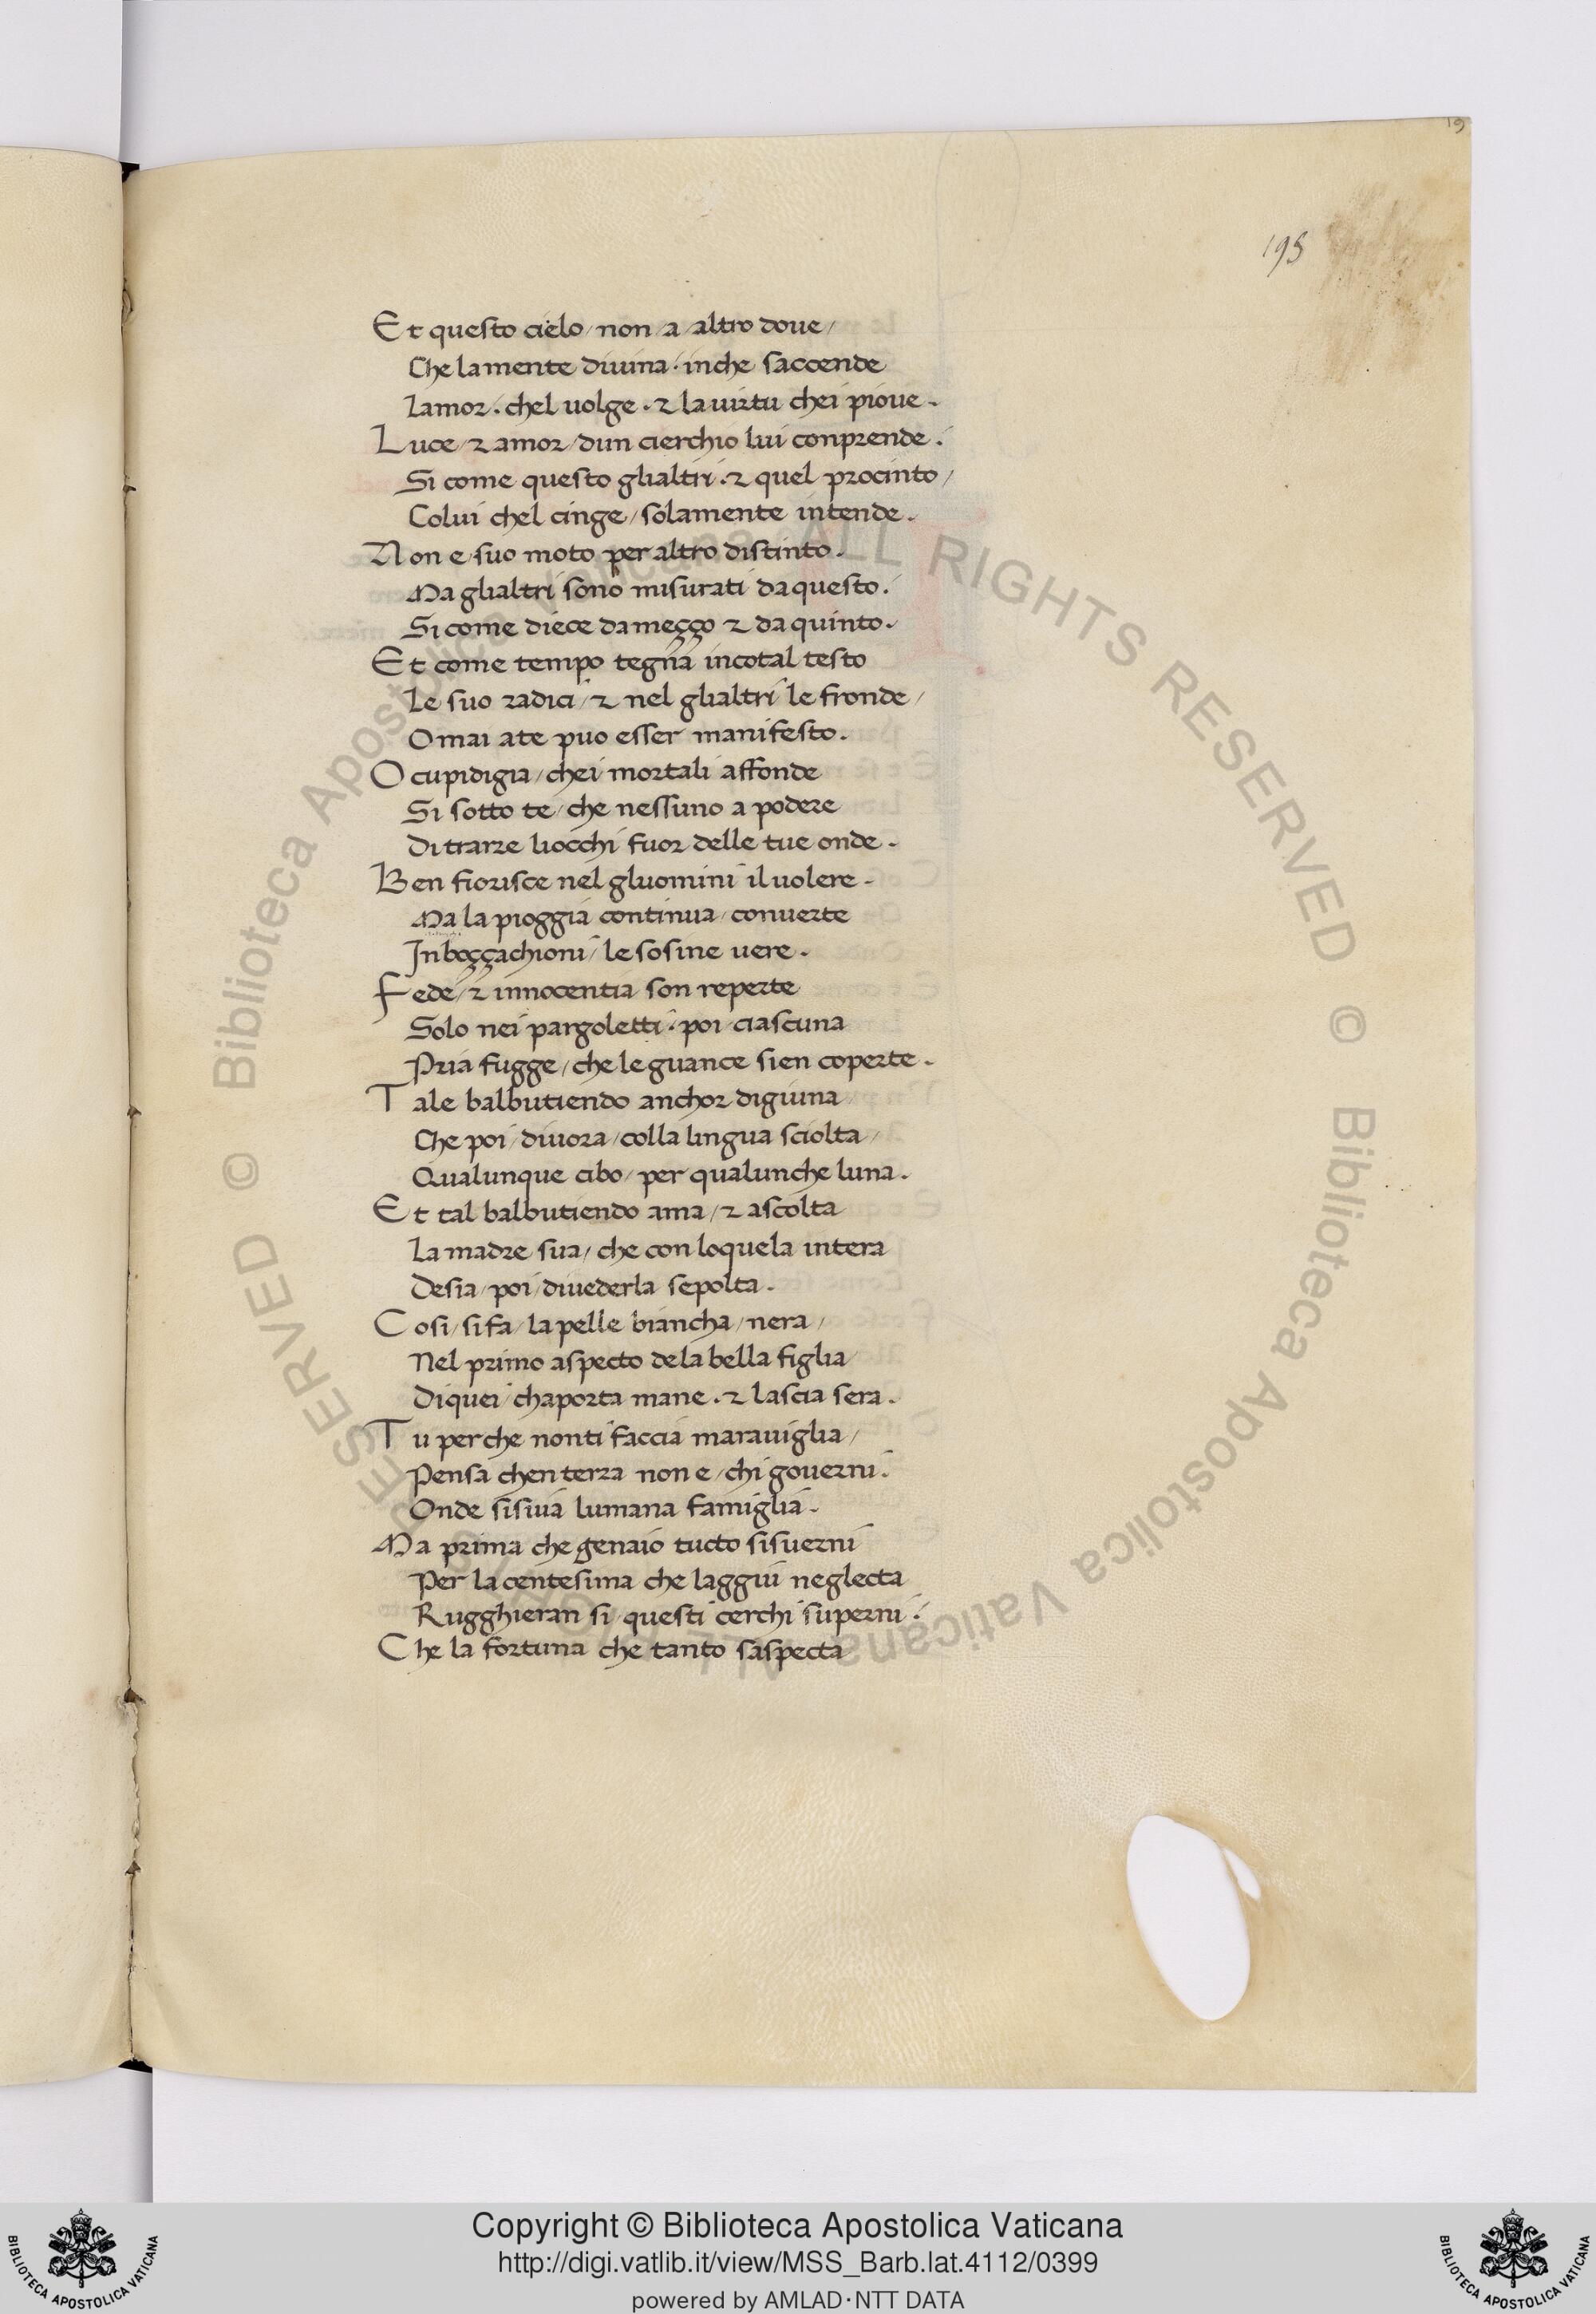 19
195
Et questo cielo / non / a / altro doue /
Che lamente diuina · inche saccende
Lamor · chel uolge · & la uirtu chei pioue ·
Luce / & amor / dun cierchio lui conprende ·
Si come questo glialtri · & quel procinto /
Colui chel cinge / solamente intende ·
Non e / suo moto per altro distinto ·
Ma glialtri sono misurati da questo ·
Si come diece da meçço & da quinto ·
Et come tempo tegna incotal testo
Le suo radici / & nel glialtri le fronde /
Omai ate puo esser manifesto ·
O cupidigia / chei mortali affonde
Si sotto te / che nessuno a podere
Di trarre liocchi fuor delle tue onde ·
Ben fiorisce nel gluomini il uolere ·
Ma la pioggia continua / conuerte
In boççachioni / le sosine uere ·
Fede / & innocentia son reperte
Solo nei pargoletti · poi ciascuna
Pria fugge / che le guance sien coperte ·
Tale balbutiendo anchor digiuna
Che poi / diuora / colla lingua sciolta /
Qualunque cibo / per qualunche luna ·
Et tal balbutiendo ama / & ascolta
La madre sua / che con loquela intera
Desia / poi / diuederla sepolta ·
Cosi / si fa / la pelle biancha / nera /
Nel primo aspecto de la bella figlia
Di quei chaporta mane · & lascia sera ·
Tu perche nonti faccia marauiglia /
Pensa chen terra non e / chi gouerni ·
Onde sisuia lumana famiglia ·
Ma prima che genaio tucto sisuerni
Per la centesima che laggiu neglecta
Rugghieran si questi cerchi superni ·
Che la fortuna che tanto saspecta
© Biblioteca Apostolica Vaticana ALL RIGHTS RESERVED © Biblioteca Apostolica Vaticana ALL RIGHTS RESERVED
Copyright © Biblioteca Apostolica Vaticana
http://digi.vatlib.it/view/MSS_Barb.lat.4112/0399
powered by AMLAD·NTT DATA
BIBLIOTECA APOSTOLICA VATICANA
BIBLIOTECA APOSTOLICA VATICANA